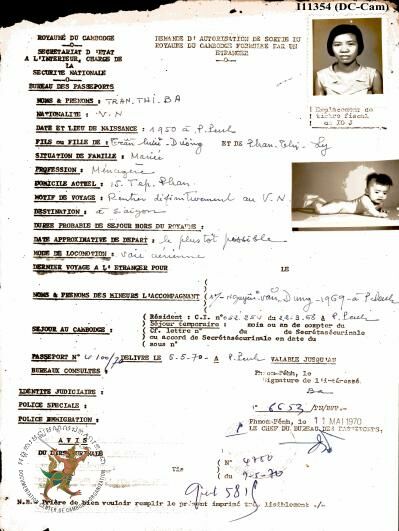 111354 (DC-Cam)
ROYAUME DU CAMBODGE
SECRETARIAT D'ETAT
A L'INTERIEUR, CHARGE DE
LA
SECURITE NATIONALE
BUREAU DES PASSEPORTS
DEMANDE D'AUTORISATION DE SORTIE DU
ROYAUME DU CAMBODGE FORMULEE PAR UN
ETRANGER
Emplacement de
timbre fiscal
NOMS & PRENOMS : TRAN.THI.BA
NATIONALITE : V.N
DATE ET LIEU DE NAISSANCE : 1950 à P.Penh
FILS ou FILLE DE : ET DE Phan-Thi-Ly
SITUATION DE FAMILLE : Mariée
PROFESSION : Ménagère
DOMICILE ACTUEL : 15. Tep. Phan.
MOTIF DE VOYAGE : Rentrer définitivement au V.N
DESTINATION : à Saigon
DUREE PROBABLE DE SEJOUR HORS DU ROYAUME :
DATE APPROXIMATIVE DE DEPART : le plus tôt possible
MODE DE LOCOMOTION : voie aérienne
DERNIER VOYAGE A L'ETRANGER POUR LE
NOMS & PRENOMS DES MINEURS L'ACCOMPAGNANT Nguyên Văn Dung-1969-à P.Penh
SEJOUR AU CAMBODGE :
Résident : C.I. n° 052.254 du 22.3.68 à P.Penh
Séjour temporaire : mois ou an de compter du
Cf. lettre n° du de Secrétasécurinale
ou accord de Secrétasécurinale en date du
sous n°
PASSEPORT N° 4100/70 DELIVRE LE 5.5.70 - à P.Penh VALABLE JUSQU'AU
BUREAUX CONSULTES :
Phnom-Pénh, le
Signature de l'intéressé.
Ba
IDENTITE JUDICIAIRE :
POLICE SPECIALE :
POLICE IMMIGRATION :
N° 6653
Phnom-Pénh, le 11 MAI 1970
P. LE CHEF DU BUREAU DES PASSEPORTS,
AVIS
DU
Vis
N° 4760
du 9-5-70
N.B. - Prière de bien vouloir remplir le présent imprimé très lisiblement ./-